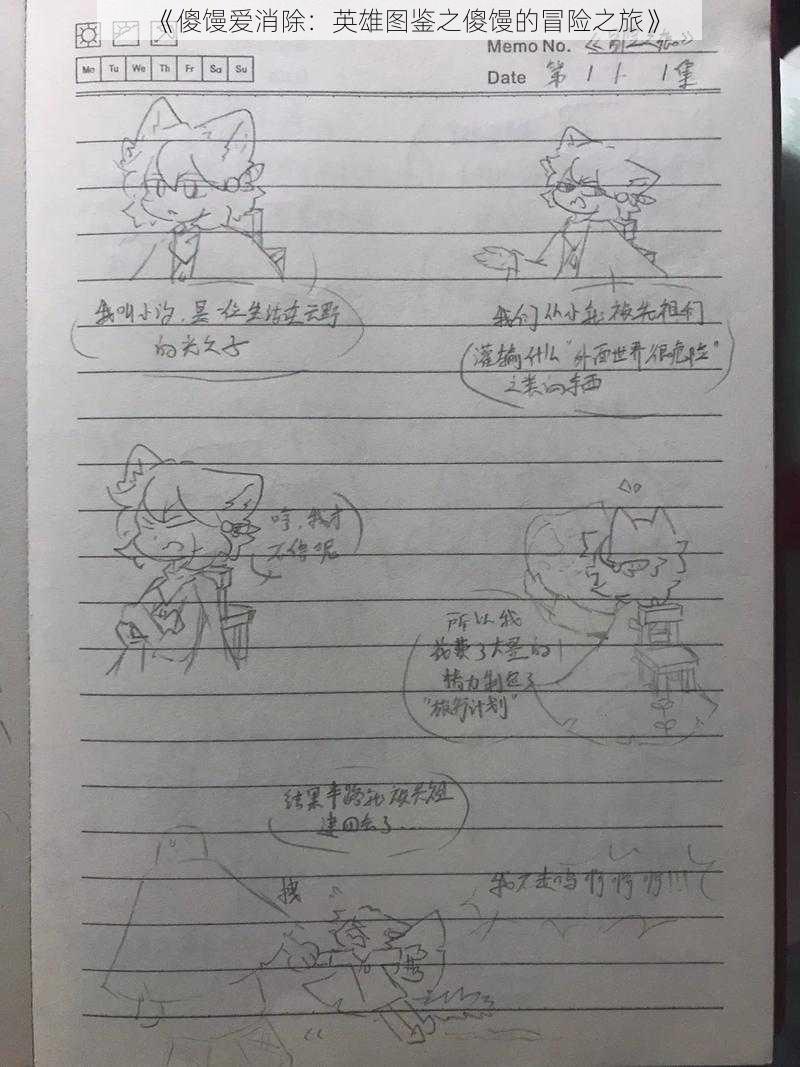 《傻馒爱消除：英雄图鉴之傻馒的冒险之旅》
Memo No. 《冒险之旅》
Mo Tu We Th Fr Sa Su
Date 第 1 / 1集
我叫小汐，是一位生活在云野
的光之子
我们从小就被先祖们
灌输什么“外面世界很危险”
之类的东西
哼，我才
不信呢
所以我
花费了大量的
精力制定了
“旅行计划”
结果半路就被先祖
逮回去了…
拽
我不走呜啊啊啊!!!